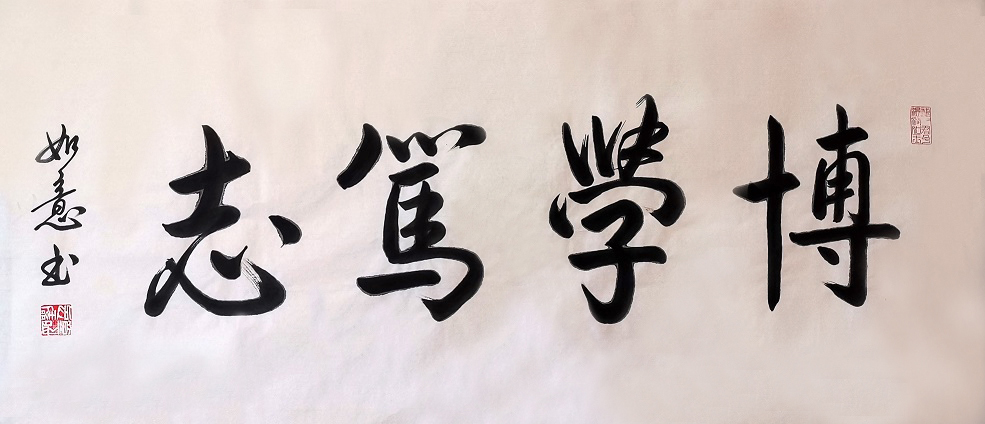 博學篤志
如意书